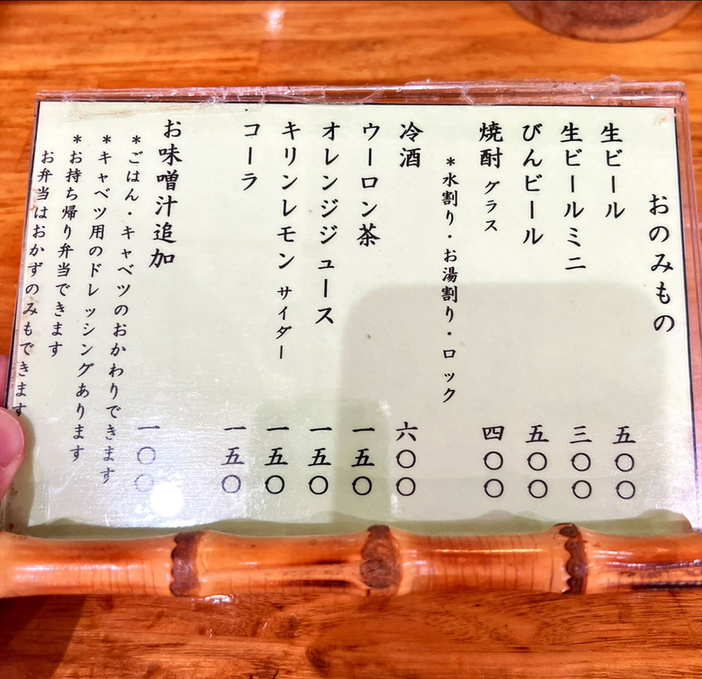 おのみもの
生ビール 五〇〇
生ビールミニ 三〇〇
びんビール 五〇〇
焼酎 グラス 四〇〇
＊水割り・お湯割り・ロック
冷酒 六〇〇
ウーロン茶 一五〇
オレンジジュース 一五〇
キリンレモン サイダー 一五〇
コーラ 一五〇
お味噌汁追加 一〇〇
＊ごはん・キャベツのおかわりできます
＊キャベツ用のドレッシングあります
＊お持ち帰り弁当できます
お弁当はおかずのみもできます